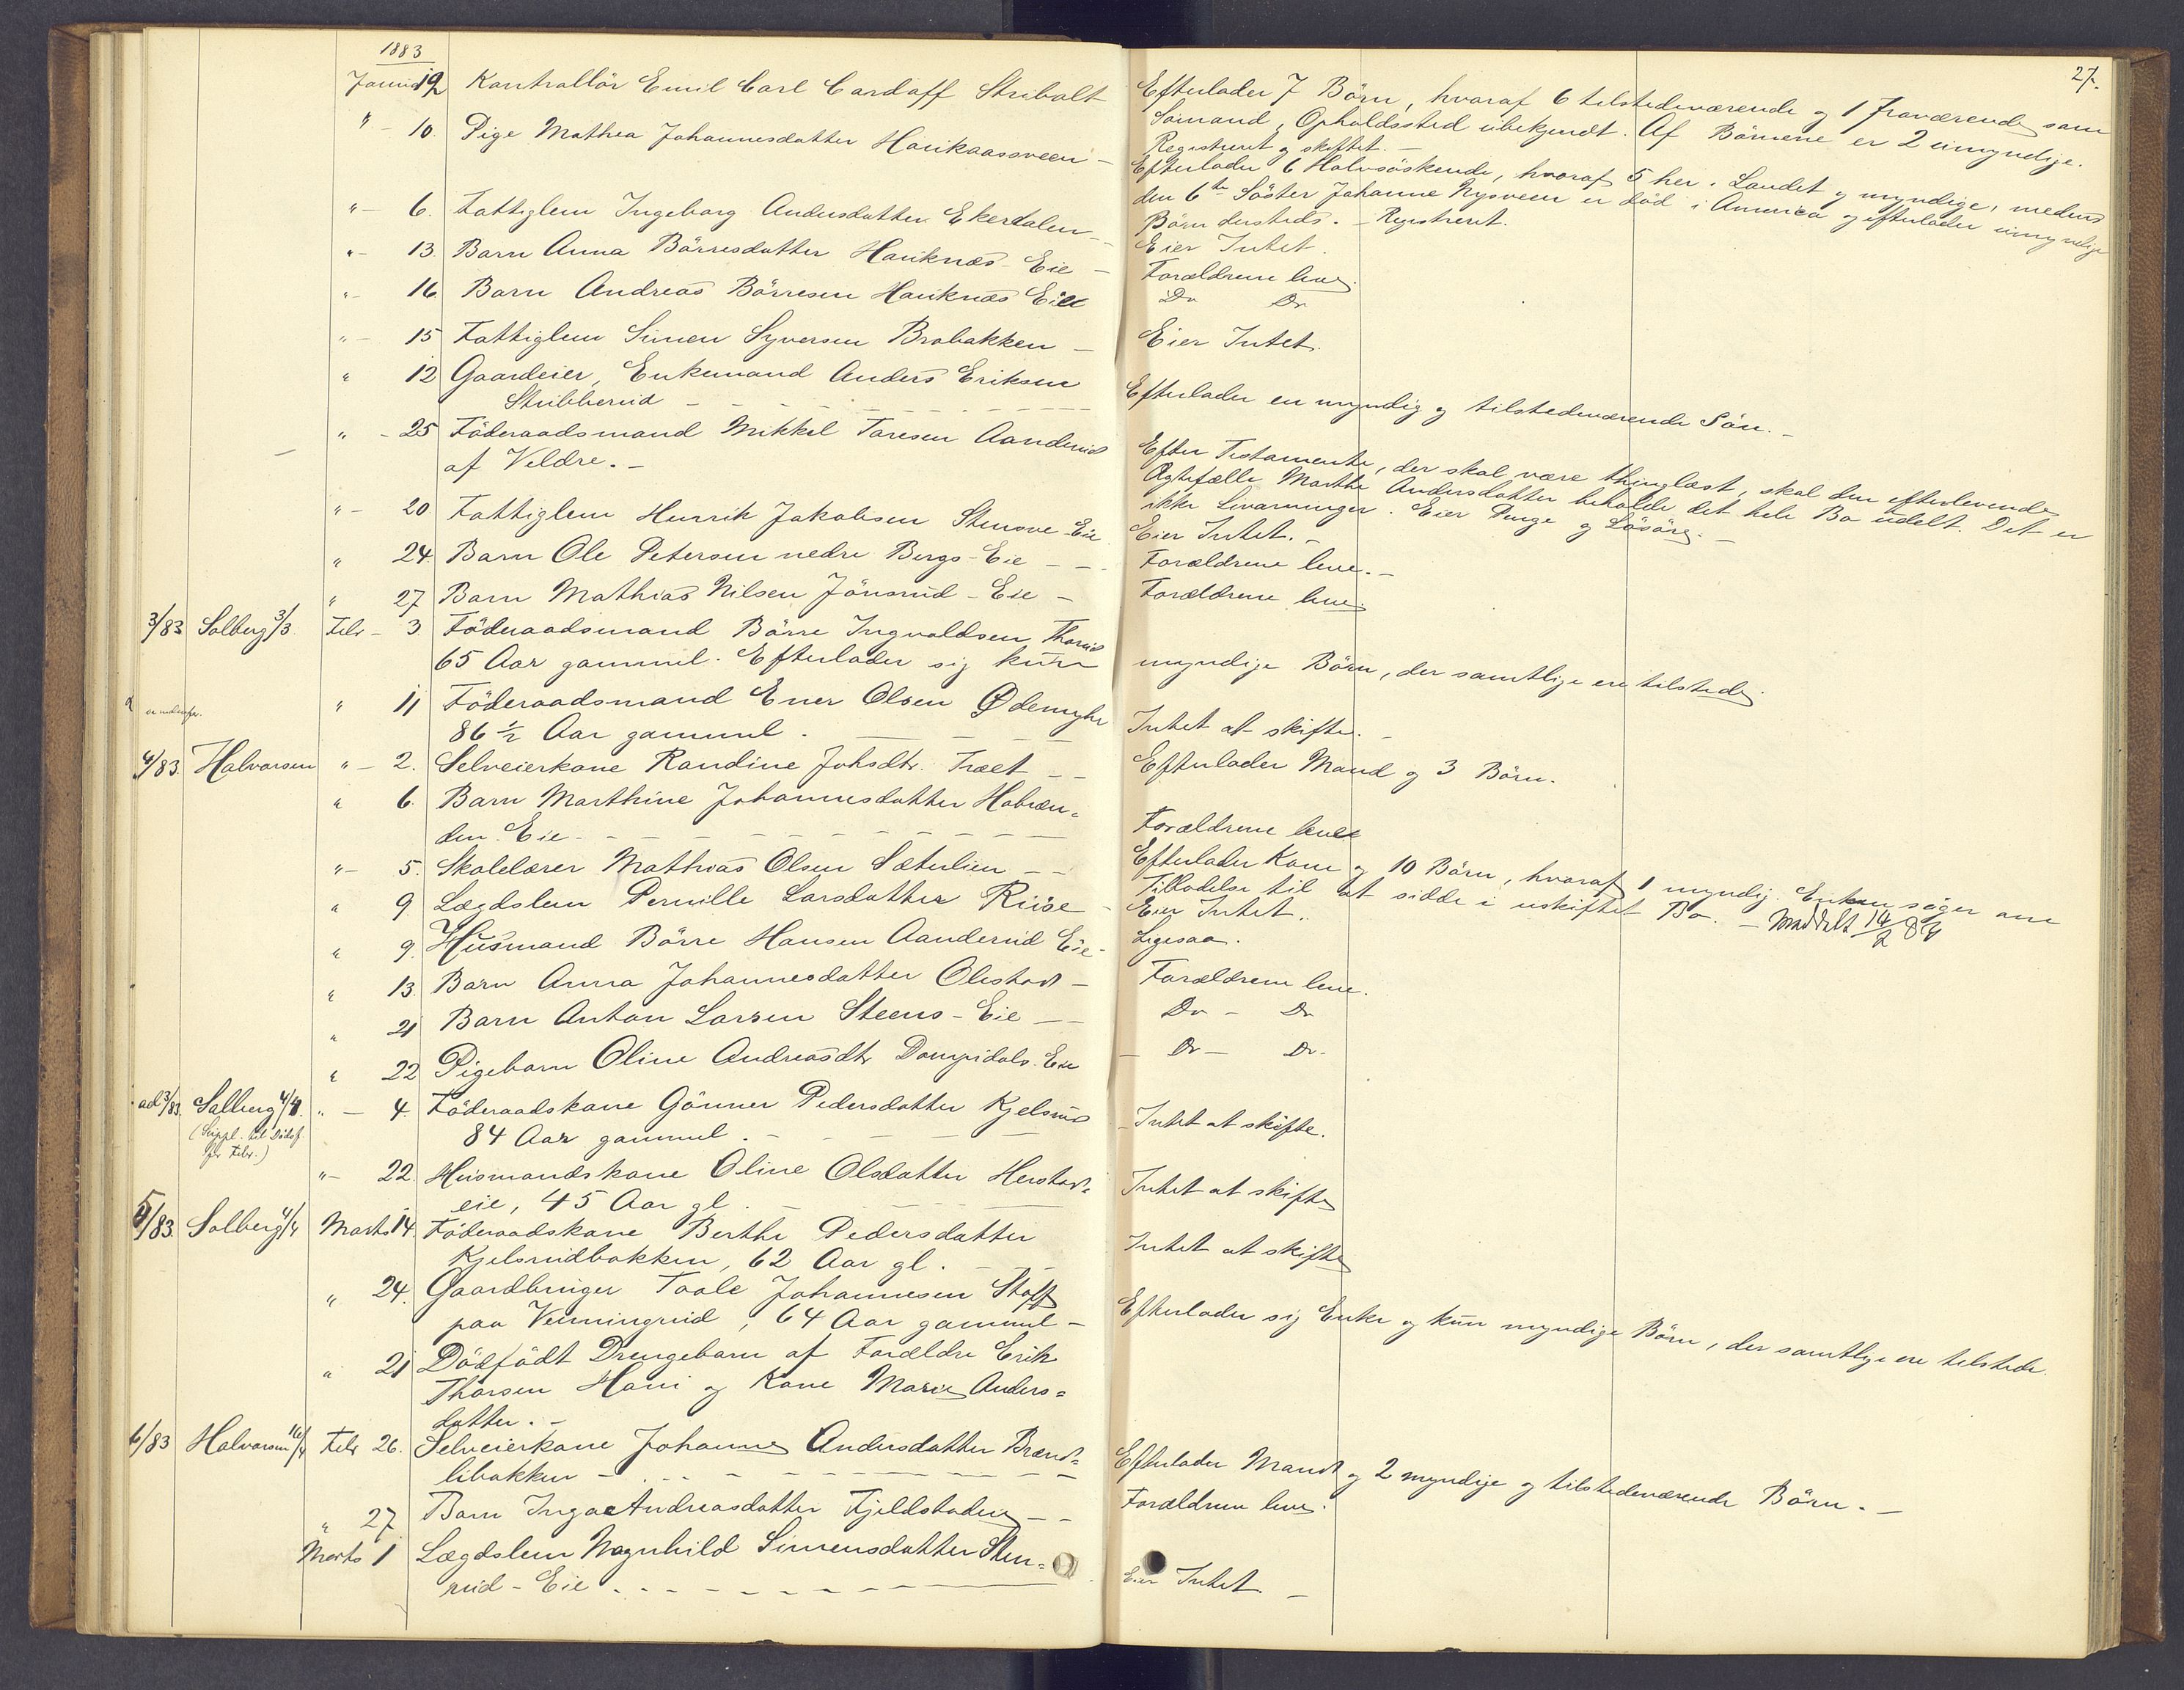 1883
27.
Januar 19 Kontrollör Emil Carl Cardoff Stribolt
Efterlader 7 Börn, hvoraf 6 tilstedeværende og 1 fraværende som
Sömand, Opholdssted ubekjendt. Af Börnene er 2 umyndige.
Registreret og skiftet. -
" - 10. Pige Mathea Johannesdatter Haukaassveen -
Efterlader 6 Halvsöskende, hvoraf 5 her i Landet og myndige, medens
den 6te Söster Johanne Nysveen er död i America og efterlader umyndige
Börn dersteds. - Registreret.
" - 6. Fattiglem Ingeborg Andersdatter Ekerdalen -
Eier Intet.
" - 13. Barn Anna Börresdatter Hauknæs-Eie -
Forældrene leve.
" - 16 Barn Andreas Börresen Hauknæs Eie
Do Do
" - 15 Fattiglem Simen Syversen Brobakken -
Eier Intet.
" 12 Gaardeier, Enkemand Anders Eriksen
Stubberud - - -
Efterlader en myndig og tilstedeværende Sön. -
" - 25 Föderaadsmand Mikkel Toresen Aanderud
af Veldre. -
Efter Testamente, der skal være thinglæst, skal den efterlevende
Ægtefælle Marthe Andersdatter beholde det hele Bo udelt. Det er
ikke Livarvinger. Eier Penge og Lösöre. -
" - 20 Fattiglem Henrik Jakobsen Stensve-Eie
Eier Intet. -
" 24. Barn Ole Petersen nedre Bergs-Eie - -
Forældrene leve. -
" 27 Barn Mathias Nilsen Jönsrud-Eie -
Forældrene leve.
3/83 Solberg 3/3. Febr - 3. Föderaadsmand Börre Ingvaldsen Thorud
65 Aar gammel. Efterlader sig kun myndige Börn, der samtlige ere tilstede.
" 11 Föderaadsmand Ener Olsen Ødemyhr
86 1/2 Aar gammel. - - -
Intet at skifte. -
4/83. Halvorsen " - 2. Selveierkone Randine Johsdtr. Træet - -
Efterlader Mand og 3 Börn.
" 6. Barn Marthine Johannesdatter Hobæn=
den Eie - - -
Forældrene leve
" - 5. Skolelærer Mathias Olsen Sæterlien - -
Efterlader Kone og 10 Börn, hvoraf 1 myndig. Enken söger om
Tilladelse til at sidde i uskiftet Bo. - Meddelt 14/2 84
" 9 Lægdslem Pernille Larsdatter Riise -
Eier Intet.
" 9. Husmand Börre Hansen Aanderud Eie -
Ligesaa.
" 13. Barn Anna Johannesdatter Olestad -
Forældrene leve.
" 21 Barn Anton Larsen Steens-Eie - -
Do - Do
" 22 Pigebarn Oline Andreasdtr Dompidals Eie
- Do - Do -
ad 3/83. Solberg 4/4. " - 4. Föderaadskone Gönner Pedersdatter Kjelsrud
(Suppl. til Dödsf.
for Febr.)
84 Aar gammel. - - -
Intet at skifte.
" - 22. Husmandskone Oline Olsdatter Herstad=
eie, 45 Aar gl. - - -
Intet at skifte
5/83. Solberg 4/4 Marts 14. Föderaadskone Berthe Pedersdatter
Kjelsrudbakken, 62 Aar gl. - -
Intet at skifte
" 24. Gaardbruger Toole Johannesen Stoff
paa Veinningrud, 64 Aar gammel -
Efterlader sig Enke og kun myndige Börn, der samtlige ere tilstede.
" 21 Dödfödt Drengebarn af Forældre Erik
Thorsen Hom og Kone Marie Anders=
datter. -
6/83 Halvorsen 16/4 Febr 26. Selveierkone Johanne Andersdatter Brænd=
libakken - - -
Efterlader Mand og 2 myndige og tilstedeværende Börn. -
" 27 Barn Inga Andreasdatter Fjeldstaden - -
Forældrene leve.
Marts 1 Lægdslem Magnhild Simensdatter Sten=
rud-Eie. - - -
Eier Intet -